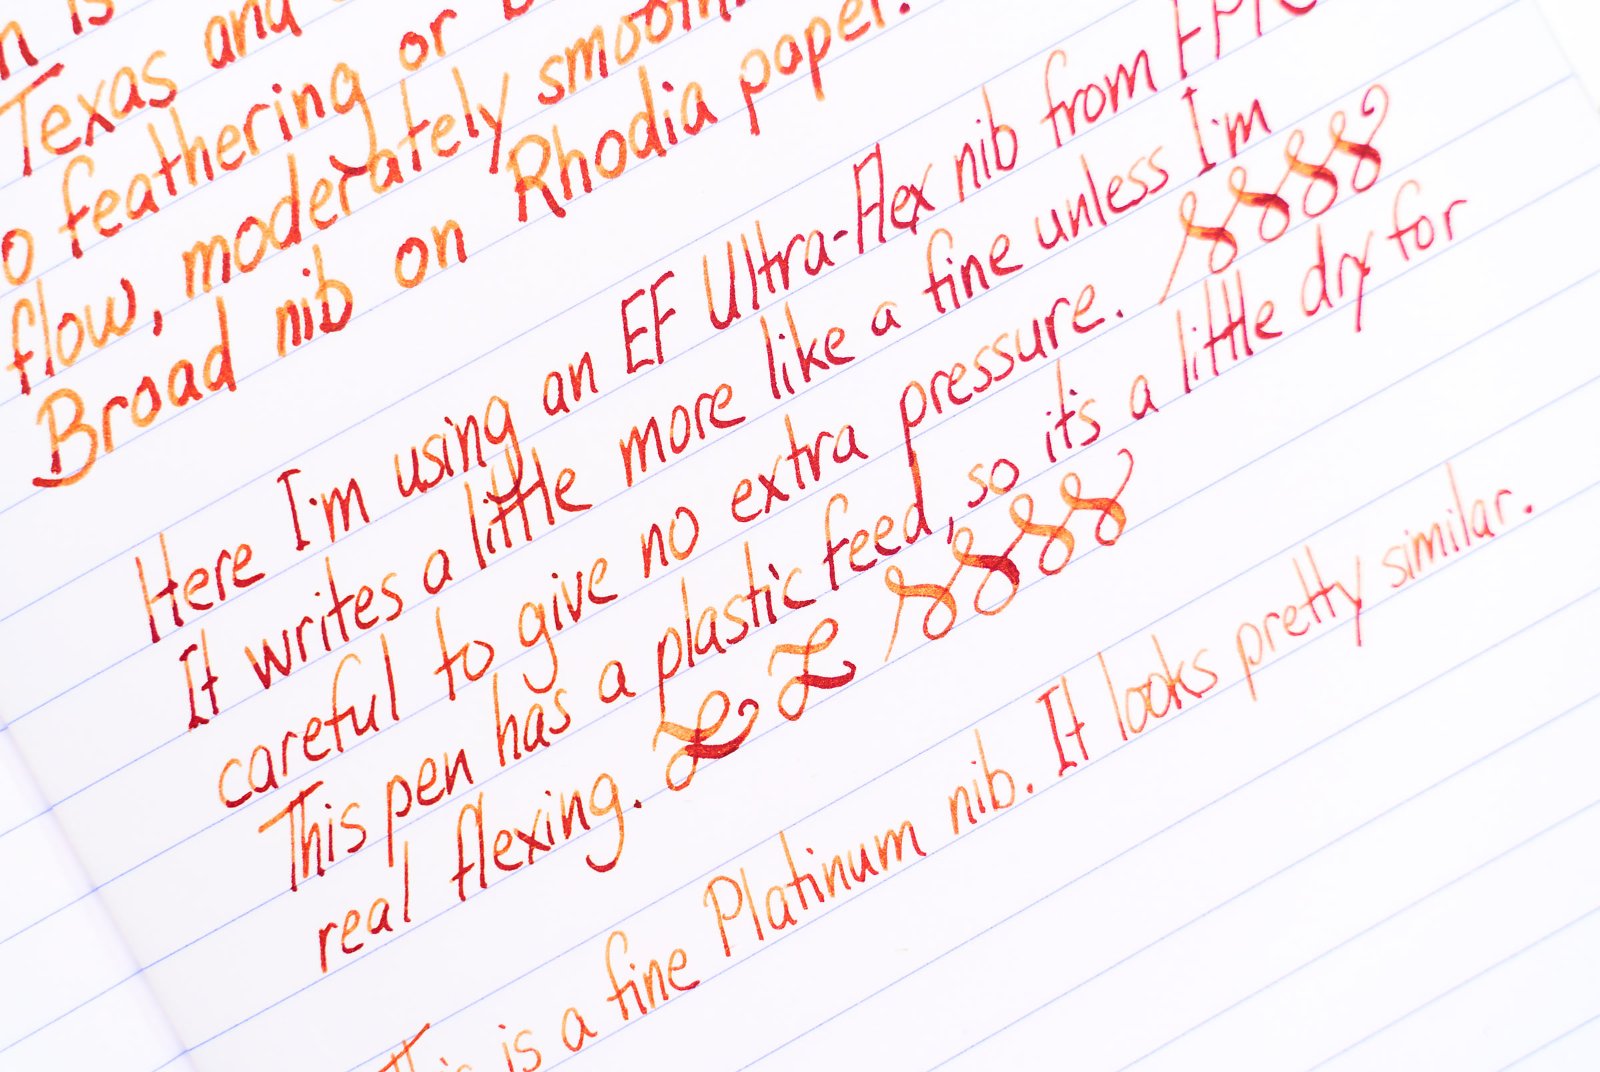 is
Texas and
feathering or
flow, moderately smooth.
Broad nib on Rhodia paper.
Here I'm using an EF Ultra-Flex nib from FPR
It writes a little more like a fine unless I'm
careful to give no extra pressure.
This pen has a plastic feed, so it's a little dry for
real flexing.
This is a fine Platinum nib. It looks pretty similar.